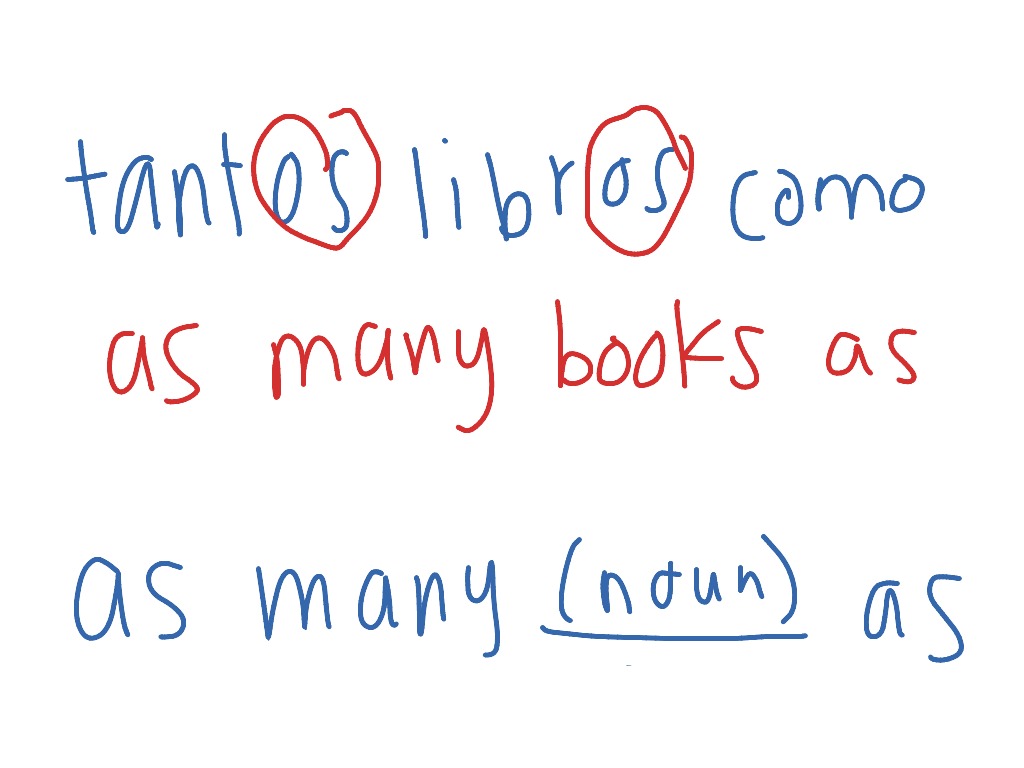 tantos libros como
as many books as
as many (noun) as